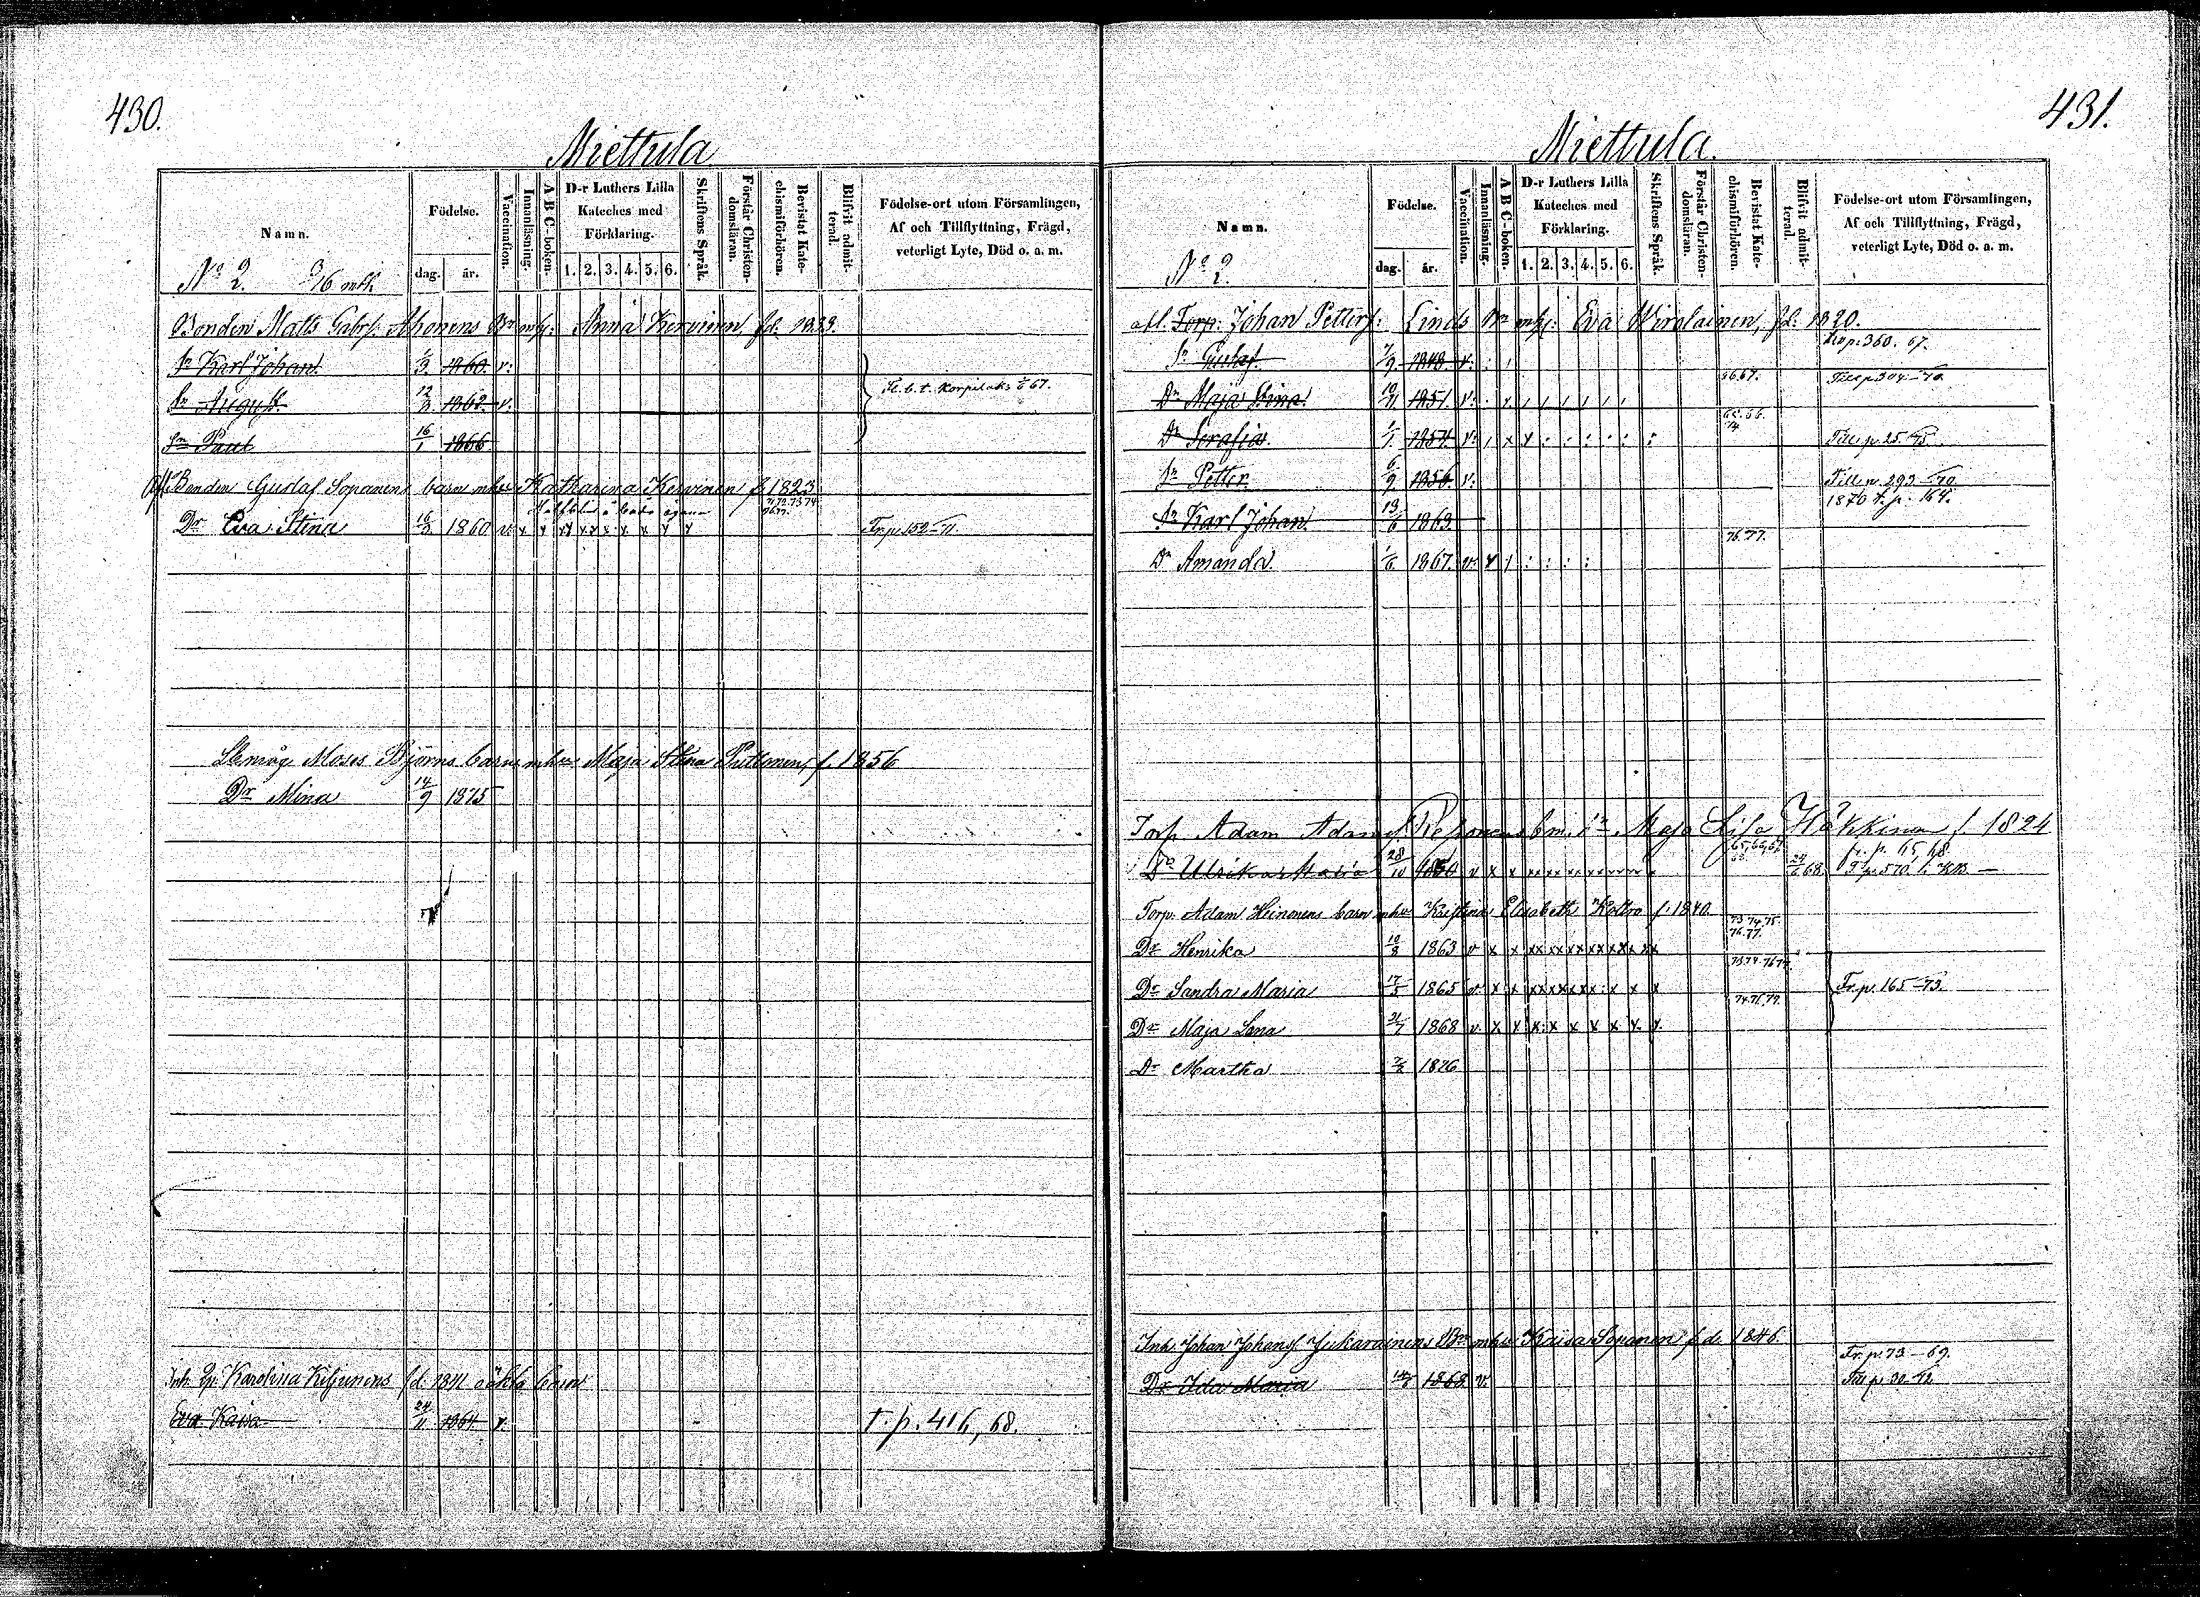 430.
Miettula
Namn. Födelse. Vaccination. Innanläsning. A B C-boken. D-r Luthers Lilla Kateches med Förklaring. Skriftens Språk. Förstår Christendomsläran. Bevistat Katechismiförhören. Blifvit admitterad. Födelse-ort utom Församlingen, Af och Tillflyttning, Frägd, veterligt Lyte, Död o. a. m.
dag. år. 1. 2. 3. 4. 5. 6.
No 2. 3/6 mtl
Bonden Matts Gabrs: Ahonens Bn mh: Anna Kervinen fd. 1833.
Sn Karl Johan 1860. v:
Sn August 12/3 1862. v:
Fl. b. t. Korpilaks 67.
Sn Paul 16/1 1866
Bonden Gustaf Sopanens barn mhu Katharina Kervinen f. 1823
Dr Eva Stina 16/3 1860 v: x x x x x x x x x Fr. p. 152-71.
Moses Björns barn mhu Maja Stina Puttonen, f. 1856
Dr Mina 14/9 1875
Inh. Karolina Kiljunens fd. 1841 oäkta barn
Eva Kaisa 24/11 1864 v: t. p. 416, 68.
431.
Miettula.
Namn. Födelse. Vaccination. Innanläsning. A B C-boken. D-r Luthers Lilla Kateches med Förklaring. Skriftens Språk. Förstår Christendomsläran. Bevistat Katechismiförhören. Blifvit admitterad. Födelse-ort utom Församlingen, Af och Tillflyttning, Frägd, veterligt Lyte, Död o. a. m.
dag. år. 1. 2. 3. 4. 5. 6.
No 2.
afl. Torp: Johan Petters: Linds Bn mh: Eva Wirolainen, fd: 1820.
Sn Gustaf 7/9 1848. v: 360. 67.
Dr Maja Stina 10/11 1851. v: 66.67. Till p 304-70.
Dr Serafia 1/1 1854. v: 65.66. 74 Till p. 25-75.
Sn Petter 6/9 1856. v: Till p. 293-70
1870 t. p. 164.
Sn Karl Johan 13/6 1863
Dr Amanda 1/6 1867. v: 76.77.
Torp Adam Adamsf Reponens b m. Maja Lisa Häkkinen f. 1824
Dr Ulrika Maria 28/10 1850 v x x xx xx xx 65, 66, 67, 68. 24/6 68. fr. p. 65, 68.
Torp. Adam Heinonens barn mhu Kristina Elisabeth Koltro f. 1840.
Dr Henrika 10/8 1863 v x x xx xx xx xx xx xx 73.74.75. 76.77.
Dr Sandra Maria 17/5 1865 v. x x xx xx xx x: x x x Fr. p. 165-73.
Dr Maja Lena 21/7 1868 v. x x x: x x x x x x 74.76.77.
Dr Martha 7/2 1876
Inh. Johan Johans Jukarainens Bn mhu Kaisa Sopanen fd. 1846.
Fr. p. 73-69.
Dr Ida Maria 1868 v. Till p 30-72